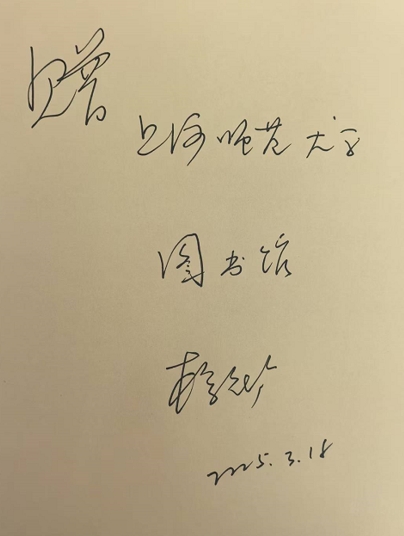 赠
上海师范大学
图书馆
2025.3.18